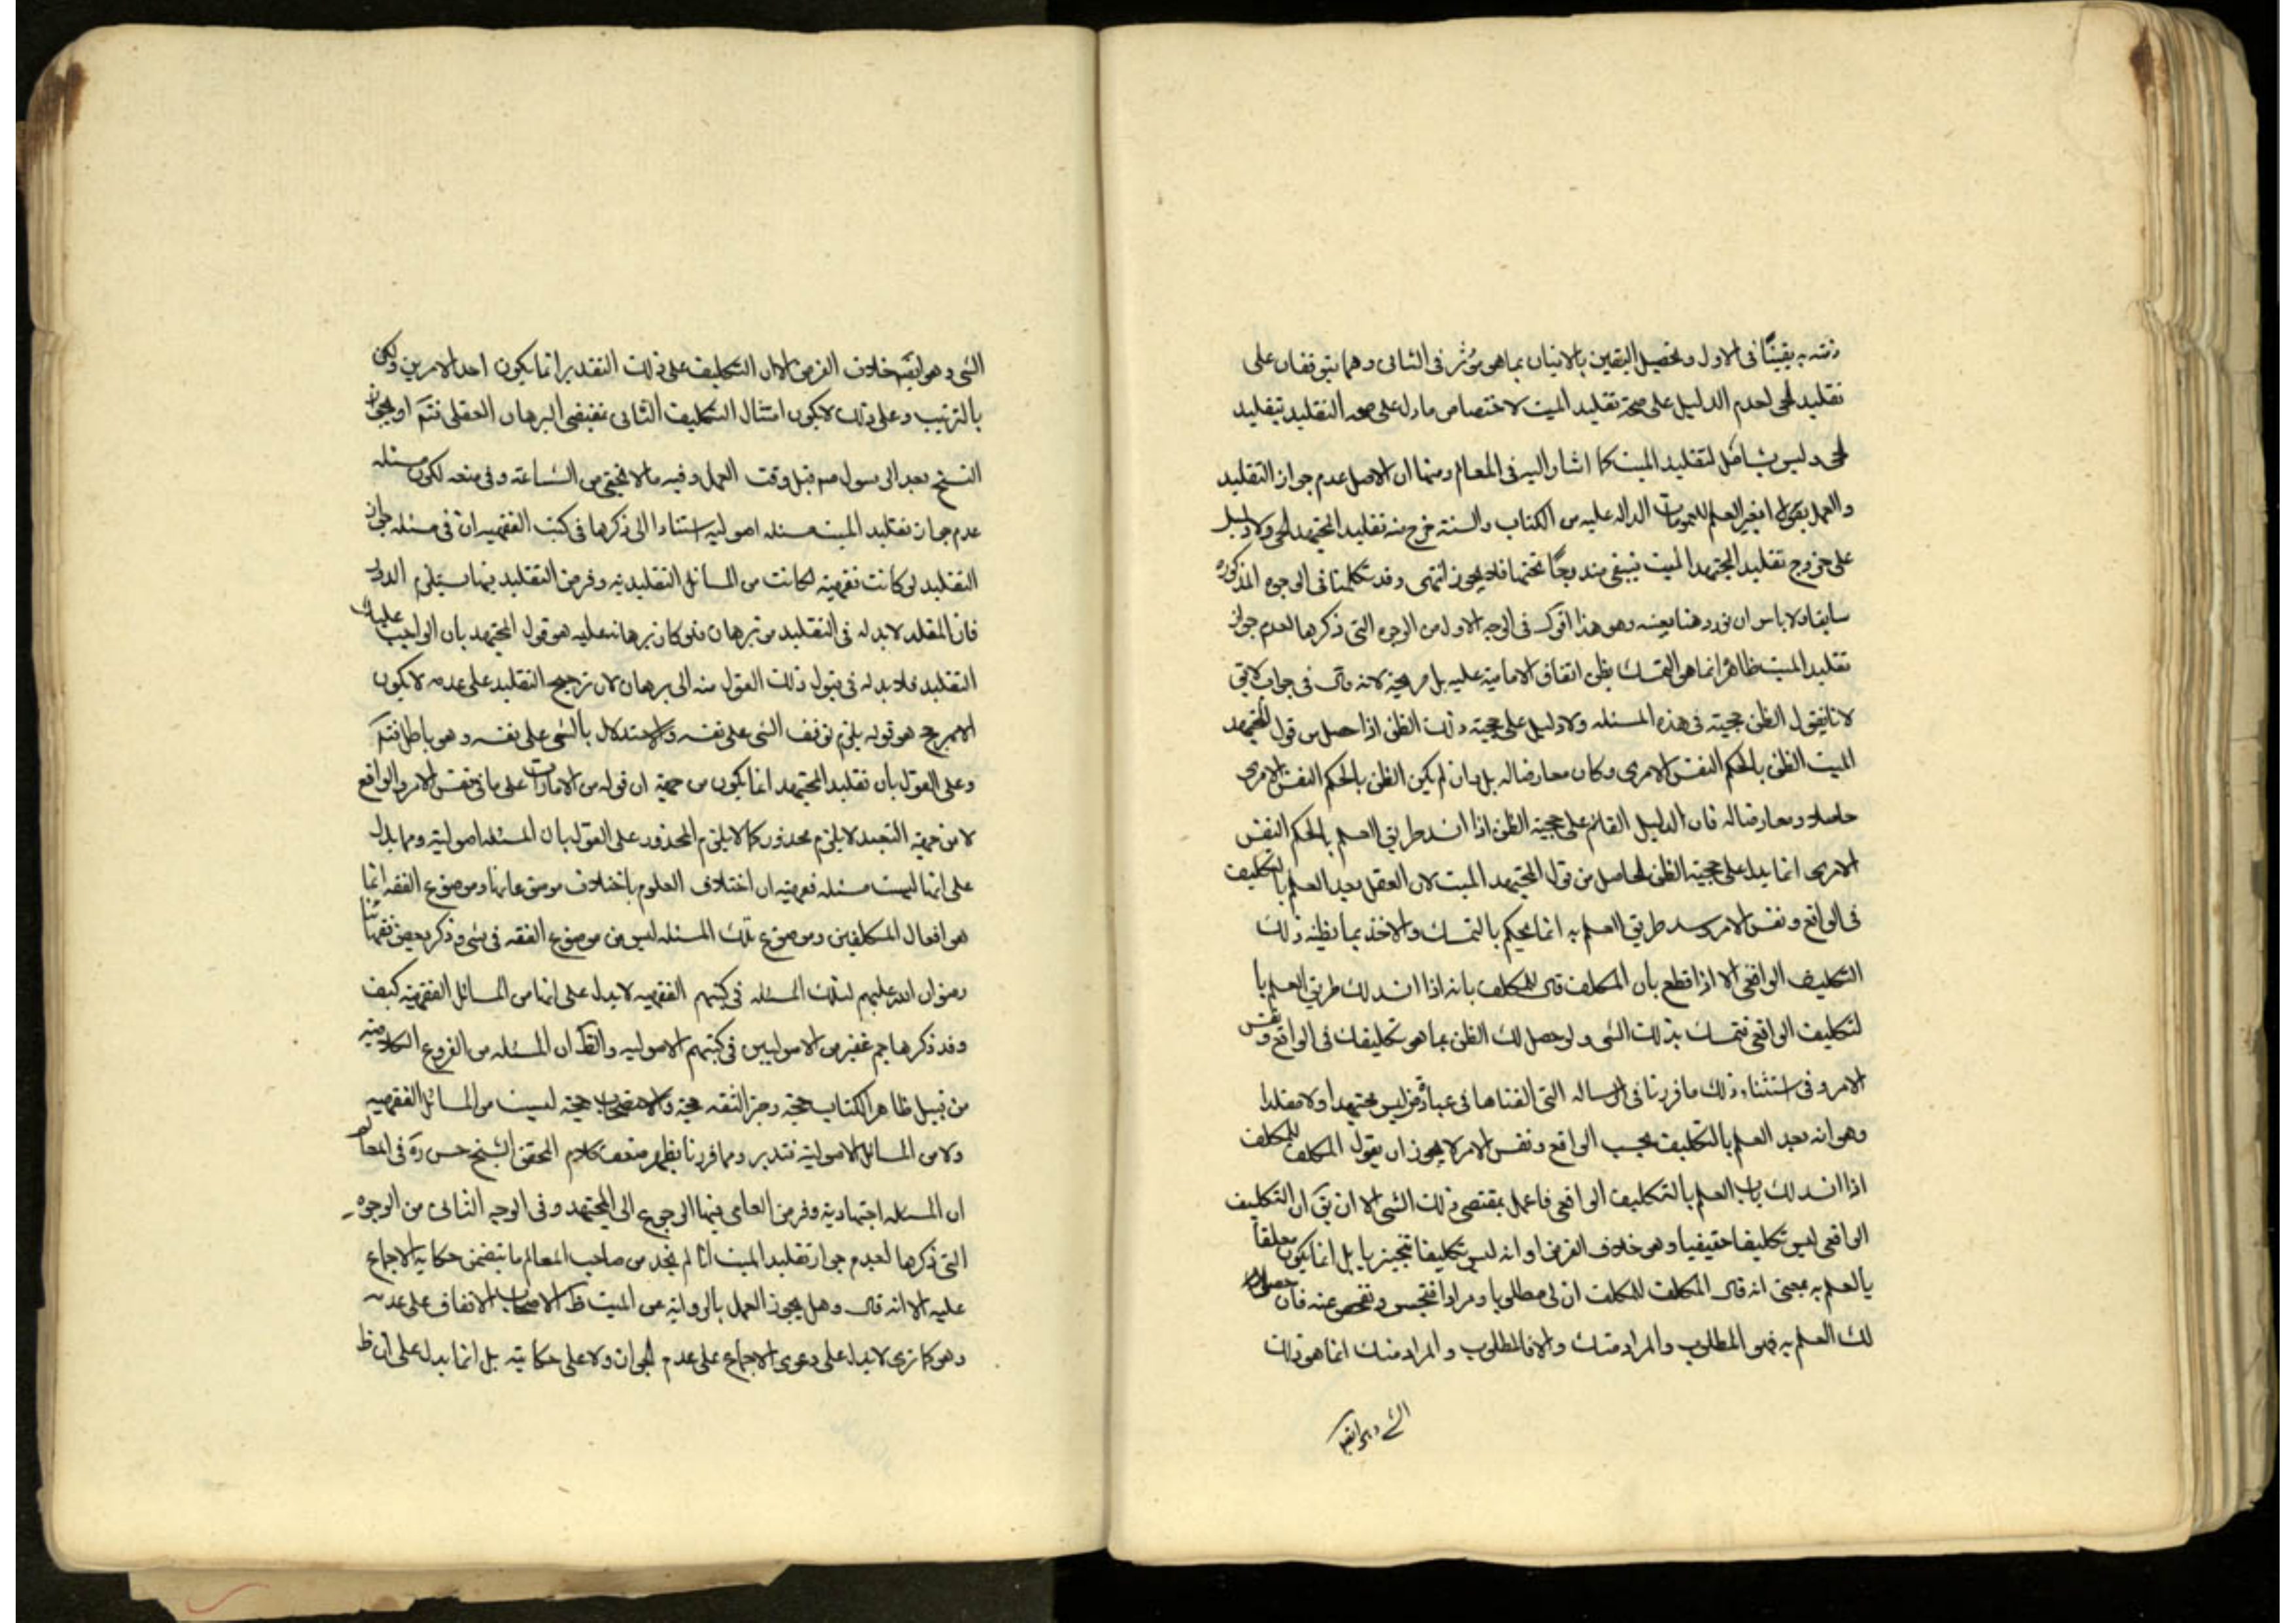 ذمته به يقينًا فى الاول وتحصيل اليقين بالاتيان بما هو مؤثر فى الثانى وهما يتوقفان على
تقليد الحى لعدم الدليل على صحة تقليد الميت لاختصاص ما دل على صحه التقليد بتقليد
الحى وليس بشامل لتقليد الميت كما اشار اليه فى المعالم ومنها ان الاصل عدم جواز التقليد
والعمل بغير العلم للعمومات الداله عليه من الكتاب والسنة خرج منه تقليد المجتهد الحى ولا دليل
على خروج تقليد المجتهد الميت فيبقى مندرجًا تحتها فلا يجوز انتهى وقد تكلمنا فى الوجوه المذكوره
سابقا ولا باس ان نورد هنا بعينه وهو هذا اقول فى الوجه الاول من الوجوه التى ذكرها لعدم جواز
تقليد الميت ظاهرا انما هو التمسك بظن اتفاق الامامية عليه بل صريحة لانه قال فى جواب لا يق
لانا نقول الظن حجيته فى هذه المسئله ولا دليل على حجية ذلك الظن اذا حصل من قول المجتهد
الميت الظن بالحكم النفس الامرى وكان معارضا له بل بان لم يكن الظن بالحكم النفس الامرى
حاصلا ومعارضا له فان الدليل القائم على حجية الظن اذا انسد طريق العلم بالحكم النفس
الامرى انما يدل على حجية الظن الحاصل من قول المجتهد الميت لان العقل بعد العلم بالتكليف
فى الواقع ونفس الامر وسد طريق العلم به انما يحكم بالتمسك والاخذ بما يظنه ذلك
التكليف الواقعى الا اذا قطع بان المكلف قال للمكلف بانه اذا انسد لك طريق العلم با
لتكليف الواقعى فتمسك بذلك الشى ولو حصل لك الظن بما هو تكليفك فى الواقع ونفس
الامر وفى استثناء ذلك ما قررنا فى الرساله التى الفناها فى عبادة من ليس مجتهدا ولا مقلدا
وهو انه بعد العلم بالتكليف بحسب الواقع ونفس الامر لا يجوز ان يقول المكلف للمكلف
اذا انسد لك باب العلم بالتكليف الواقعى فاعمل بمقتضى ذلك الشى الا ان يق ان التكليف
الواقعى ليس تكليفا حقيقيا وهى خلاف الفرض او انه ليس تكليفا تنجيزيا بل انما يكون معلقا
بالعلم به بمعنى انه قال المكلف للمكلف ان لى مطلوبا ومرادا فتجسس وتفحص عنه فان حصل
لك العلم به فهو المطلوب والمراد منك والا فالمطلوب والمراد منك انما هو ذلك
الشى وهو ايضا
الشى وهو ايضا خلاف الفرض لان التكليف على ذلك التقدير انما يكون احد الامرين ولكن
بالترتيب وعلى ذلك لا يكون امتثال التكليف الثانى مقتضى البرهان العقلى فتم او يجوز
النسخ بعد الرسول ص قبل وقت العمل وفيه ما لا يخفى من الشناعة وفى منعه لكون مسئله
عدم جواز تقليد الميت مسئله اصوليه استنادا الى ذكرها فى كتب الفقهيه ان فى مسئله جواز
التقليد لو كانت فقهيه لكانت من المسائل التقليديه وفرض التقليد فيها يستلزم الدور
فان المقلد لابد له فى التقليد من برهان فلو كان برهانه عليه هو قول المجتهد بان الواجب عليك
التقليد فلابد له فى قبول ذلك القول منه الى برهان لان ترجيح التقليد على عدمه لا يكون
الا بمرجح هو قوله يلزم توقف الشى على نفسه والاستدلال بالشى على نفسه وهو باطل فتم
وعلى القول بان تقليد المجتهد انما يكون من جهة ان قوله من الامارات على ما فى نفس الامر والواقع
لا من جهة التعبد لا يلزم محذور كما لا يلزم المحذور على القول بان المسئله اصولية ومما يدل
على انها ليست مسئله فقهيه ان اختلاف العلوم باختلاف موضوعاتها وموضوع الفقه انما
هو افعال المكلفين وموضوع تلك المسئله ليس من موضوع الفقه فى شى وذكر بعض فقهائنا
رضوان الله عليهم لتلك المسئله فى كتبهم الفقهيه لا يدل على انها من المسائل الفقهية كيف
وقد ذكرها جم غفير من الاصوليين فى كتبهم الاصوليه والظ ان المسئله من الفروع الكلاميه
من قبيل ظاهر الكتاب حجة وخبر الثقه حجة والاستصحاب حجة ليست من المسائل الفقهيه
ولا من المسائل الاصولية فتدبر ومما قررنا يظهر ضعف كلام المحقق الشيخ حسن ره فى المعالم
ان المسئله اجتهادية وفرض العامى فيها الرجوع الى المجتهد وفى الوجه الثانى من الوجوه
التى ذكرها لعدم جواز تقليد الميت انا لم نجد من صاحب المعالم ما يتضمن حكاية الاجماع
عليه الا انه قال وهل يجوز العمل بالرواية عن الميت ظ الاصحاب الاتفاق على عدمه
وهو كما ترى لا يدل على دعوى الاجماع على عدم الجواز ولا على حكايته بل انما يدل على ان ظ